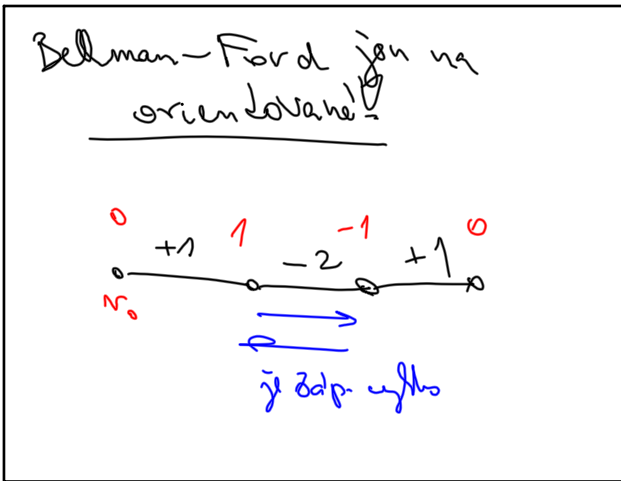 Bellman-Ford jen na
orientované!
0 1 -1 0
+1 -2 +1
v₀
je záp. cyklus